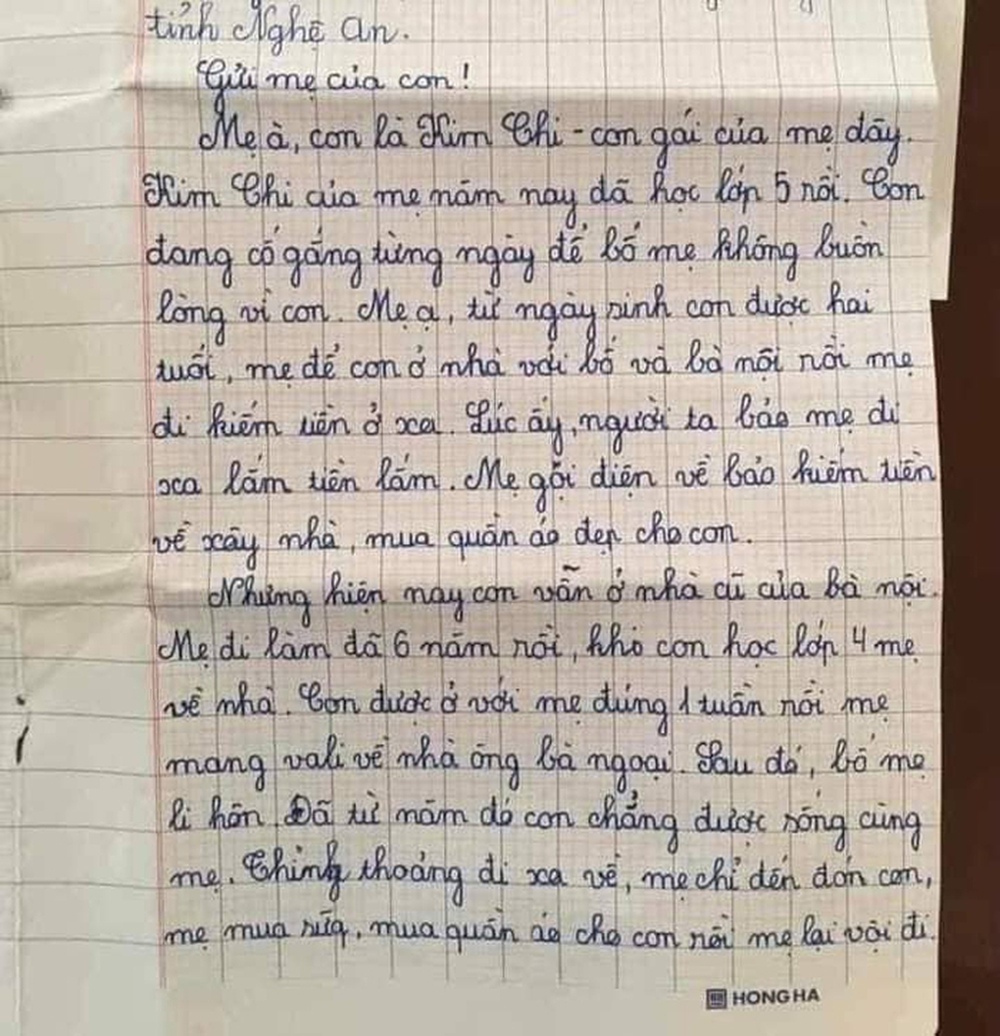 tỉnh Nghệ An.
Gửi mẹ của con!
Mẹ à, con là Kim Chi - con gái của mẹ đây.
Kim Chi của mẹ năm nay đã học lớp 5 rồi. Con
đang cố gắng từng ngày để bố mẹ không buồn
lòng vì con. Mẹ ạ, từ ngày sinh con được hai
tuổi, mẹ để con ở nhà với bố và bà nội rồi mẹ
đi kiếm tiền ở xa. Lúc ấy, người ta bảo mẹ đi
xa lắm tiền lắm. Mẹ gọi điện về bảo kiếm tiền
về xây nhà, mua quần áo đẹp cho con.
Nhưng hiện nay con vẫn ở nhà cũ của bà nội.
Mẹ đi làm đã 6 năm rồi, khi con học lớp 4 mẹ
về nhà. Con được ở với mẹ đúng 1 tuần rồi mẹ
mang vali về nhà ông bà ngoại. Sau đó, bố mẹ
li hôn. Đã từ năm đó con chẳng được sống cùng
mẹ. Thỉnh thoảng đi xa về, mẹ chỉ đến đón con,
mẹ mua sữa, mua quần áo cho con rồi mẹ lại vội đi.
HONG HA